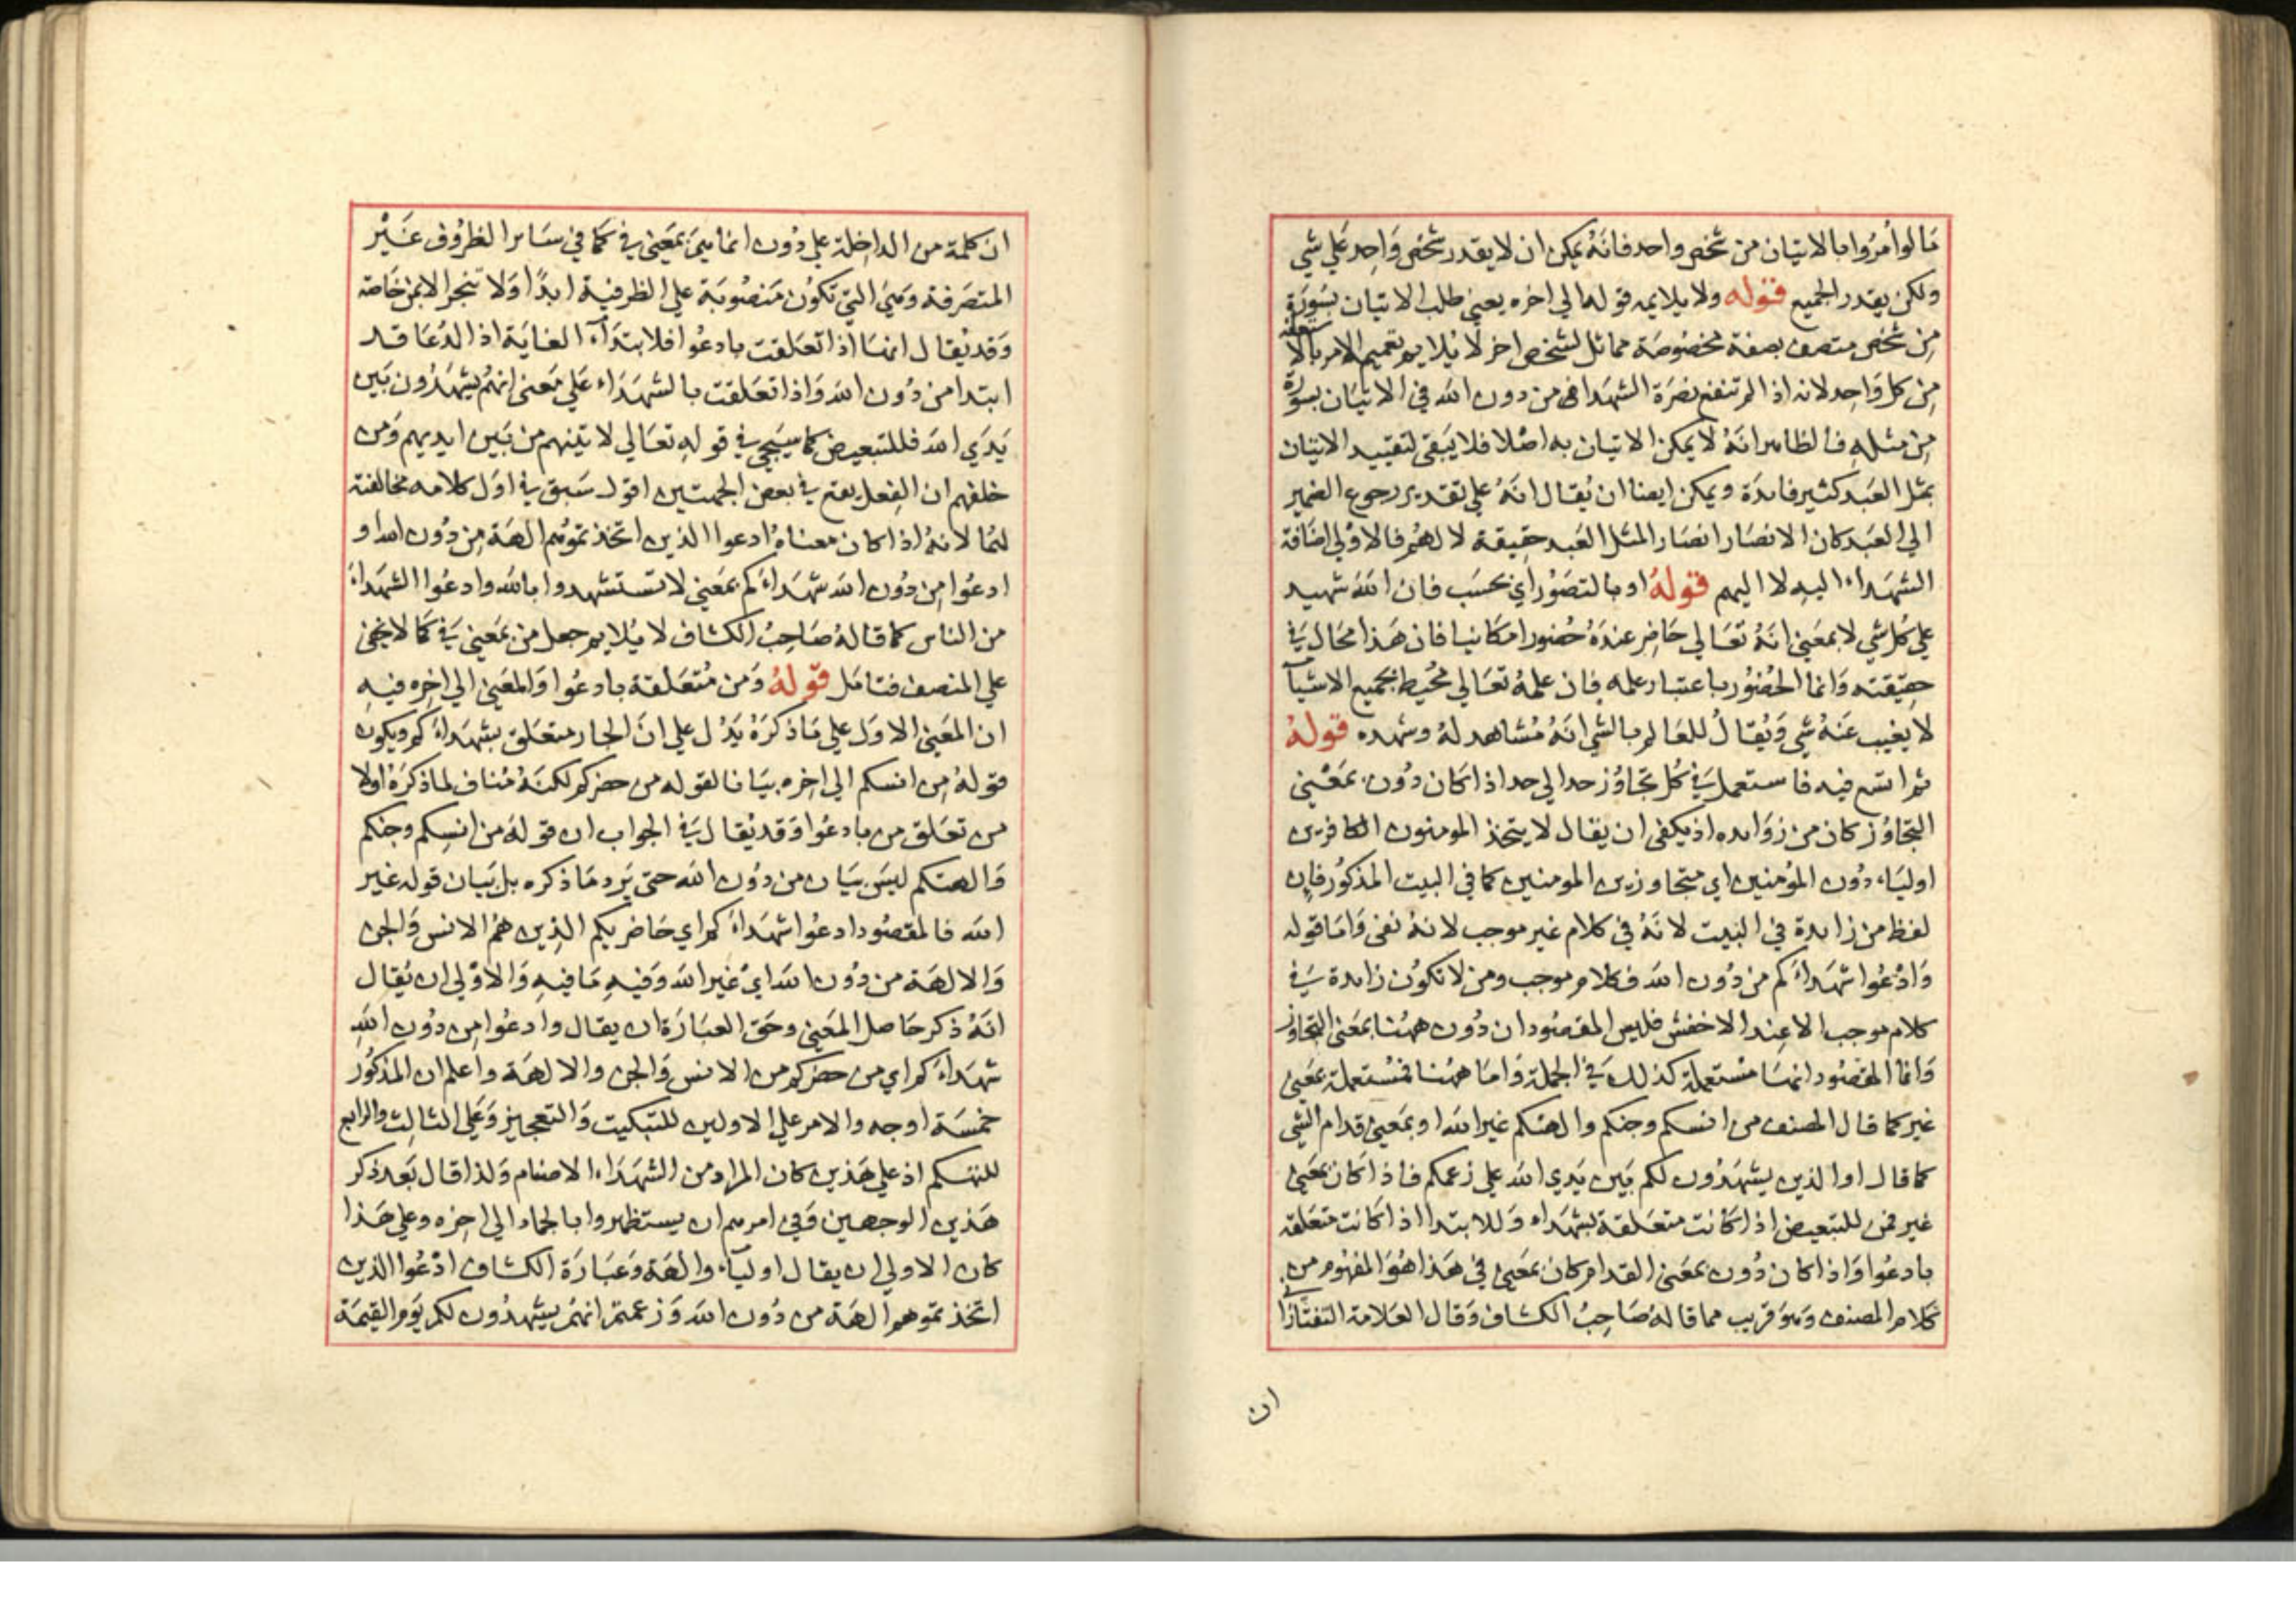 مَا لوا أمرُوا بالاتيان من شخص واحد فانَهُ يمكن ان لا يقدر شخص وَاحِد عَلي شي
ولكن يقدر الجميع قوله ولا يلايمه قوله الي اخره يعني طلب الاتيان بسُورَة
مِن شخص متصف بصفة مخصُوصَة مماثل لشخص اخر لا يُلايم تعميم الامر بالاستعانة
مِن كل وَاحِد لانه اذا لم تنفع نصَرَة الشهدا في من دون الله في الاتيَان بسورة
مِن مثلهِ فالظاهر انَهُ لا يمكن الاتيان به اصْلا فلا يَبقى لتقييد الاتيان
بمثل العَبد كثير فايدَة ويمكن ايضا ان يُقال انَهُ علي تقدير رجوع الضمير
الي العَبد كان الانصَار انصَار المثل العَبد حقيقة لا لهُم فالاوْلي اضَافة
الشهَداء اليهِ لا اليهم قولهُ او بالتصَوُر اي بحسَب فان اللهَ شهيد
علي كُل شي لا بمعَني انَهُ تعَالي حَاضِر عندَهُ حُضورا مكانيا فان هَذا محَال في
حقِيقته وَانما الحُضُور باعتبار علمه فان علمهُ تعَالي مُحيط بجميع الاشيآ
لا يغيب عَنهُ شي وَيُقالُ للعَالم بالشي انَهُ مُشاهد لهُ وشهده قولهُ
ثم اتسع فيه فاستعمل في كُل تجَاوُز حد الي حد اذا كان دُون بمَعْني
التجَاوُز كان من زوَايده اذ يكفي ان يقال لا يتخذ المومنون الكافرين
اوليَاء دُون المؤمنين اي متجاوزين المومنين كما في البيت المذكوُر فان
لفظ من زايدة في البَيت لانَهُ في كلام غير موجب لانهُ نفي وَامَا قوله
وَادْعُوا شهَداءَكم من دُون الله فكلام موجب ومن لا تكوُن زايدة في
كلام موجب الا عِند الاخفش فليس المقصُود ان دُون ههُنا بمَعنى التجاوز
وَانما المقصُود انهَا مسْتعملة كذلك في الجملة وَامَا ههُنا فمسْتعملة بمَعني
غير كما قال المصنف من انسكم وجنكم والهتكم غير الله او بمَعني قدام الشي
كما قال او الذين يشهَدُون لكم بَين يَدي الله علي زعمكم فاذا كان بمعَني
غير فمن للتبعيض اذا كانت متعَلقة بشهَداء وَللابتدا اذا كانت متعَلقة
بادعُوا وَاذا كان دُون بمعَني القدام كان بمَعني في هَذا هُوَ المفهُوم من
كلام المصنف وَهوَ قريب مما قالهُ صَاحِبُ الكشاف وَقال العَلامة التفتازاني
ان
ان كلمة من الداخِلة علي دُون انما هيَ بمعَني في كمَا في سَاير الظرُوف غَيْر
المتصَرفة وَهيَ التي تكوُن مَنصُوبَة علي الظرفية ابدًا وَلا تنجر الا بمن خَاصَة
وَقد يُقال انهَا اذا تعَلقت بادعُوا فلابتدَآء الغايَة اذ الدُعَا قد
ابتدا من دُون الله وَاذا تعَلقت بالشهَدَاء عَلي مَعنى انهُم يشهَدُون بَين
يَدَي الله فللتبعيض كما سيَجي في قولهِ تعَالي لاتينهم من بَين ايديهم وَمن
خلفهم ان الفِعل يقع في بعض الجهتين اقول سَبق في اوَل كلامه مخالفته
لهَا لانهُ اذا كان معنَاهُ ادعوا الذين اتخذتموُهم الهَة مِن دُون الله او
ادعُوا مِن دُون الله شهَداءَكم بمَعني لا تسْتشهدوا بالله وادعُوا الشهَداءَ
من الناس كما قالهُ صَاحِبُ الكشاف لا يُلايم جعل من بمَعني في كمَا لا يخفى
علي المنصف فتامَل قولهُ وَمن مُتعَلقة بادعُوا وَالمعَني الي اخِره فيهِ
ان المعَني الاوَل علي مَا ذكرَهُ يَدُل علي انَ الجار متعَلق بشهَداءَكم ويكون
قولهُ مِن انسكم الي اخِره بيَانا لقوله من حضركم لكنَهُ مُناف لما ذكرَهُ اولا
من تعَلق من بادعُوا وَقد يُقال في الجواب ان قولهُ من انسِكم وجنكم
وَالهتكم ليسَ بيَان من دوُن الله حتى يَرد مَا ذكره بل بَيان قوله غير
الله فالمقصُود ادعُوا شهَداءَكم اي حَاضريكم الذِين هُم الانس وَالجن
وَالالهَة من دوُن الله ايْ غير الله وَفيهِ مَا فيهِ وَالاوْلي ان يُقال
انَهُ ذكر حَاصل المعَني وحَق العبَارَة ان يقال وادعُوا مِن دوُن اللهِ
شهَداءَكم اي من حضركم من الانس وَالجن والالهَة واعلم ان المذكوُر
خمسَة اوجه والامر علي الاولين للتبكيت وَالتعجيز وَعَلي الثالث والرابع
للتهكم اذ علي هَذين كان المراد من الشهَدَاء الاصنام وَلذا قال بَعد ذكر
هَذين الوجهين وَفي امرهم ان يستظهروا بالجماد الي اخِره وعلي هَذا
كان الاولي ان يقال اوليَآء والهَة وَعبَارَة الكشاف ادْعُوا الذين
اتخذتموهم الهَة من دُون الله وَزعمتم انهُم يشهدُون لكم يَوم القيمَة